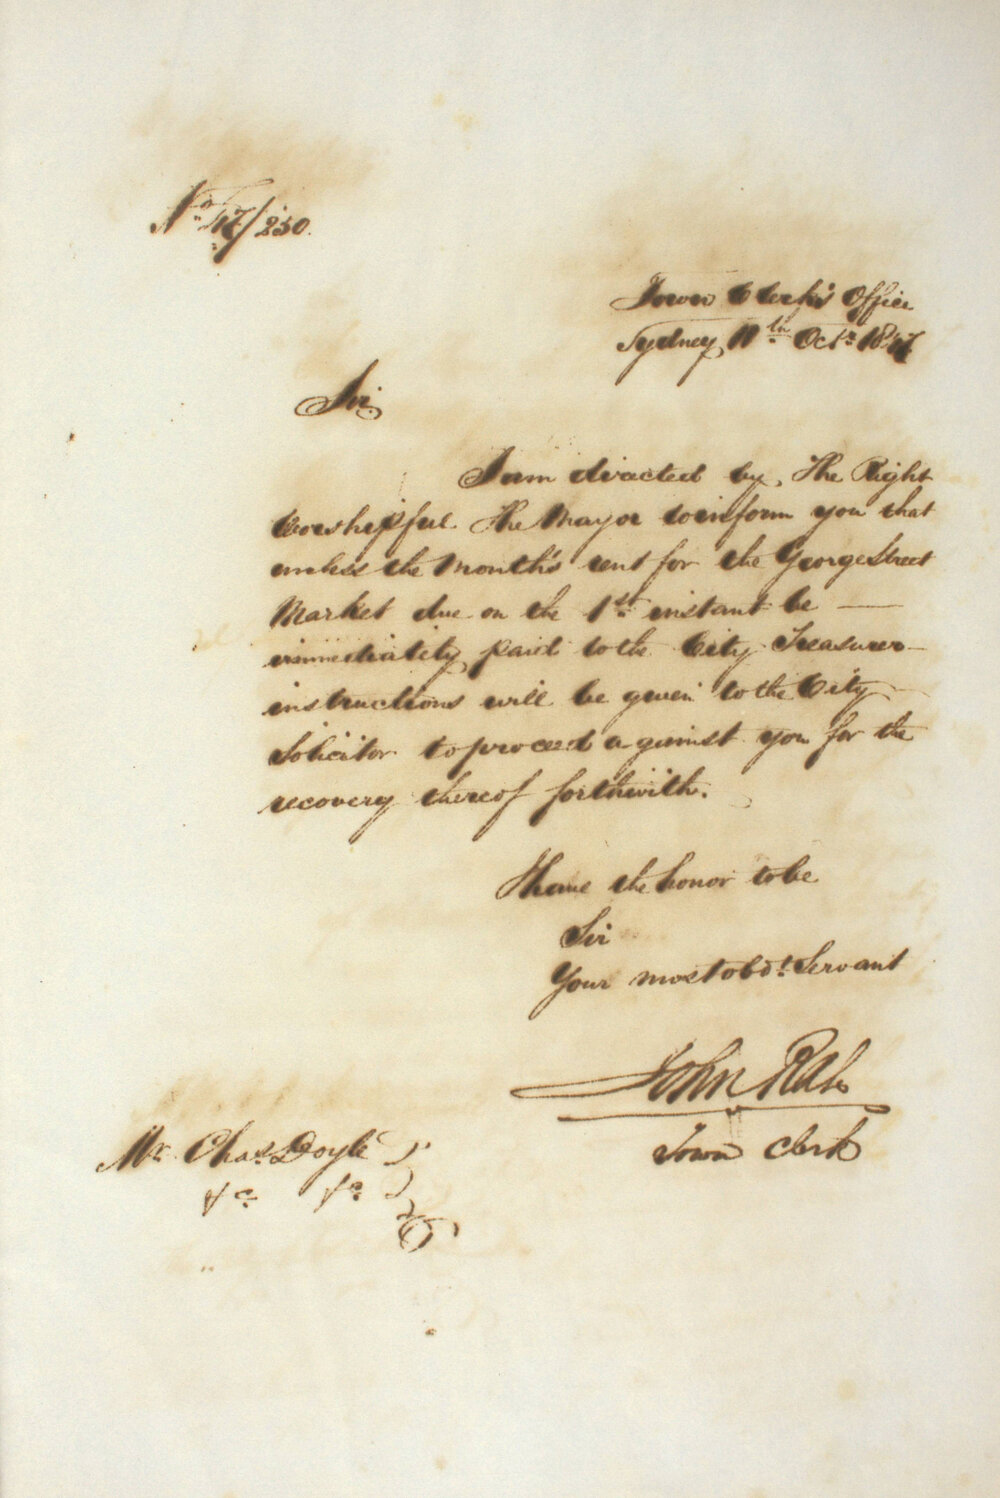 No. 47/250.
Town Clerk's Office
Sydney, 11th Octr. 1847
Sir.
I am directed by, The Right
Worshipful The Mayor to inform you that
unless the Month's rent for the George Street
Market due on the 1st. instant be —
immediately, paid to the City Treasurer —
instructions will be given to the City —
Solicitor to proceed against you for the
recovery thereof forthwith.
I have the honor to be
Sir
Your most obdt. Servant
John Rae
Town Clerk
Mr. Chas. Doyle
&c. &c.